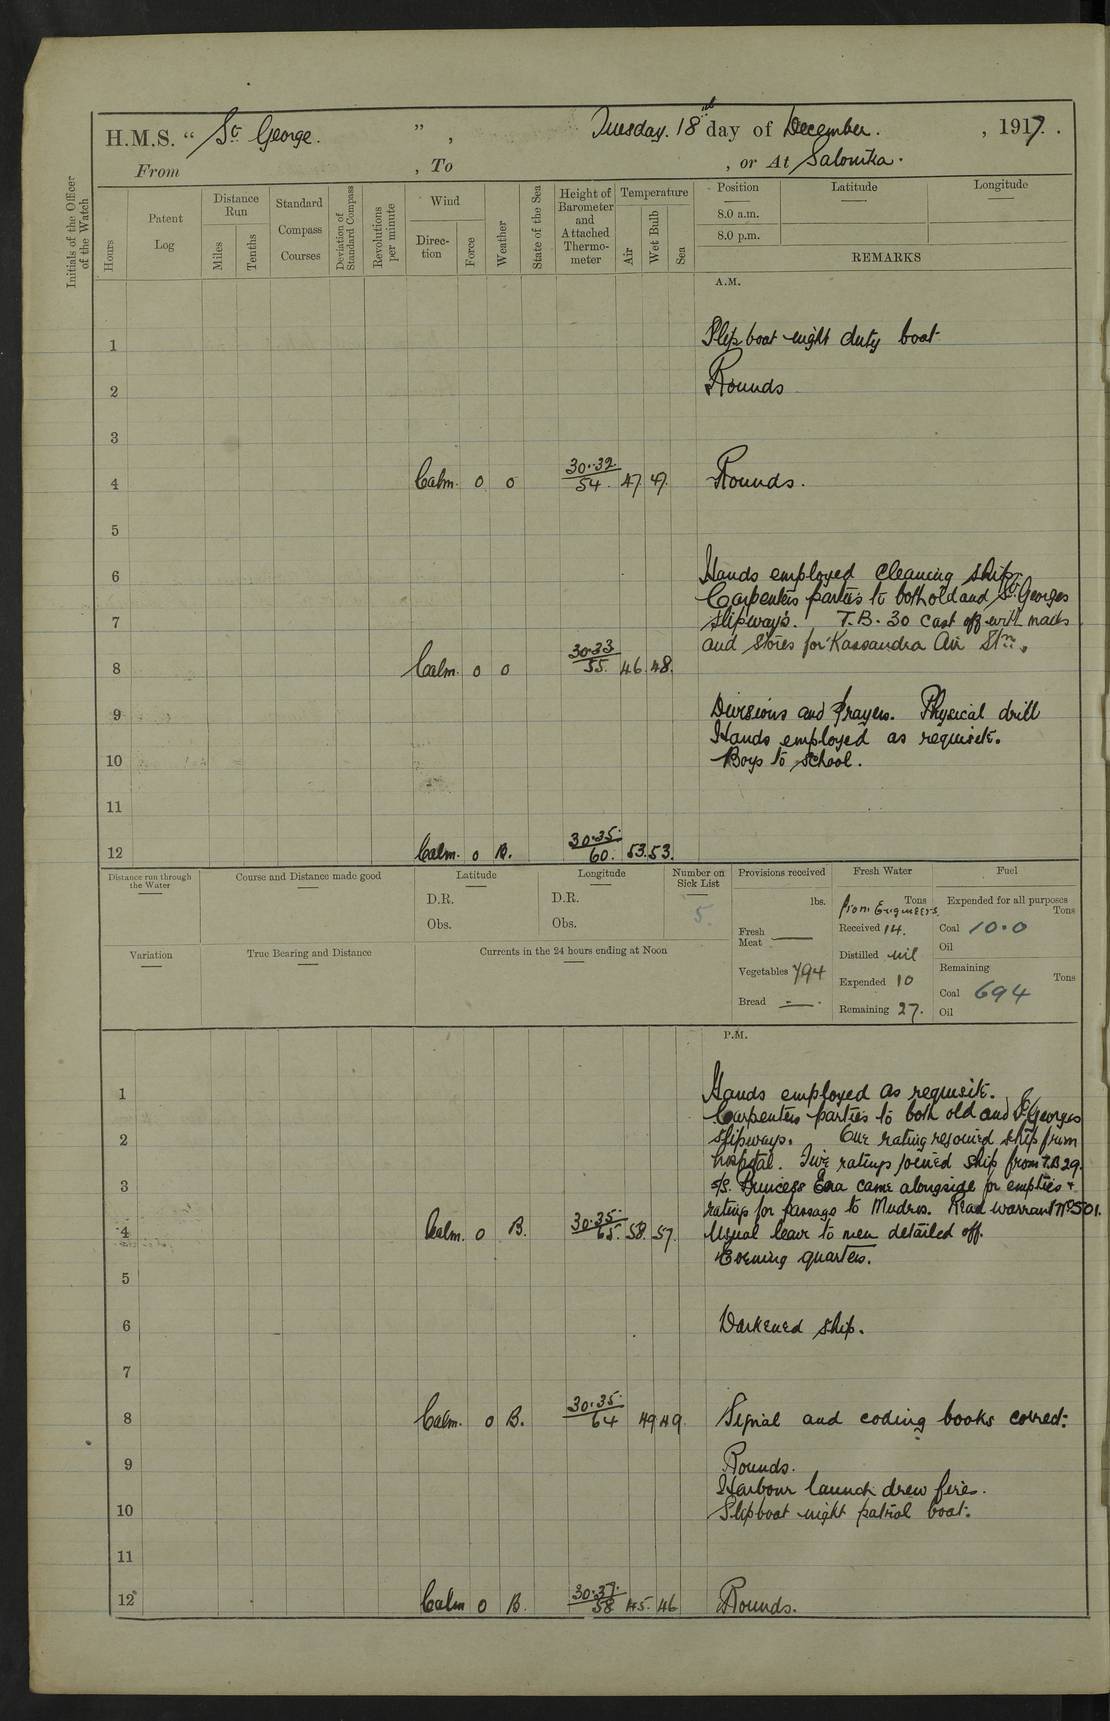 H.M.S. “ St George. ” , Tuesday. 18th day of December. , 1917. .
From , To , or At Salonika.
Initials of the Officer of the Watch
Hours
Patent Log
Distance Run
Miles
Tenths
Standard Compass Courses
Deviation of Standard Compass
Revolutions per minute
Wind
Direction
Force
Weather
State of the Sea
Height of Barometer and Attached Thermometer
Temperature
Air
Wet Bulb
Sea
Position Latitude Longitude
8.0 a.m.
8.0 p.m.
REMARKS
A.M.
1 Slip boat night duty boat
2 Rounds
3
4 Calm. 0 0 30.32 54. 47 47. Rounds.
5
6 Hands employed cleaning ship.
Carpenters parties to both old and St Georges
7 slipways. T.B. 30 cast off with mails
and stores for Kassandra Air Stn.
8 Calm. 0 0 30.33 55. 46 48.
9 Divisions and Prayers. Physical drill
Hands employed as requisite.
10 Boys to school.
11
12 Calm. 0 B. 30.35 60. 53. 53.
Distance run through the Water
Course and Distance made good
Latitude
D.R.
Obs.
Longitude
D.R.
Obs.
Number on Sick List
5.
Provisions received
lbs.
Fresh Meat —
Vegetables 794
Bread —
Fresh Water
Tons
from Engineers
Received 14.
Distilled nil
Expended 10
Remaining 27.
Fuel
Expended for all purposes
Tons
Coal 10.0
Oil
Remaining
Tons
Coal 694
Oil
Variation
True Bearing and Distance
Currents in the 24 hours ending at Noon
P.M.
1 Hands employed as requisite.
Carpenters parties to both old and St Georges
2 slipways. One rating rejoined ship from
hospital. Five ratings joined ship from T.B 29.
3 s/s. Princess Ena came alongside for empties +
ratings for passage to Mudros. Read warrant No 501.
4 Calm. 0 B. 30.35 65. 58. 57. Usual leave to men detailed off.
Evening quarters.
5
6 Darkened ship.
7
8 Calm. 0 B. 30.35 64 49 49. Signal and coding books correct:
9 Rounds.
Harbour launch drew fires.
10 Slipboat night patrol boat.
11
12 Calm 0 B. 30.37 58 45. 46 Rounds.